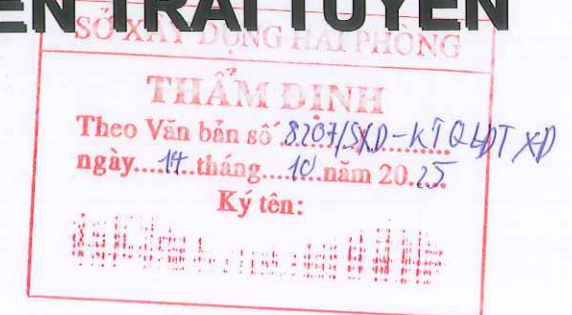 ÊN TRÁI TUYẾN
SỞ XÂY DỰNG HẢI PHÒNG
THẨM ĐỊNH
Theo Văn bản số 8207/SXD-KTQLĐTXD
ngày....14..tháng....10..năm 2025
Ký tên: